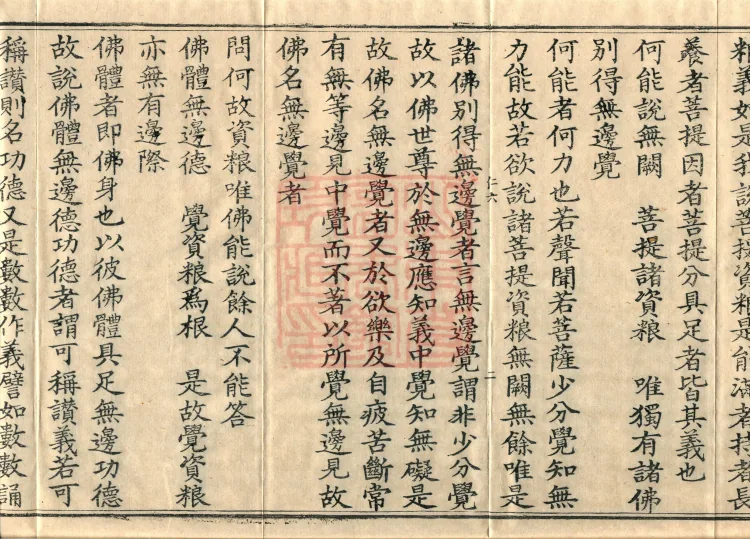 料義如是我說菩提資粮是能滿者持者長
養者菩提因者菩提分具足者皆其義也
何能說無闕　菩提諸資粮　唯獨有諸佛
別得無邊覺
何能者何力也若聲聞若菩薩少分覺知無
力能故若欲說諸菩提資粮無闕無餘唯是
仁六
二
諸佛別得無邊覺者言無邊覺謂非少分覺
故以佛世尊於無邊應知義中覺知無礙是
故佛名無邊覺者又於欲樂及自疲苦斷常
有無等邊見中覺而不著以所覺無邊見故
佛名無邊覺者
問何故資粮唯佛能說餘人不能答
佛體無邊德　覺資粮為根　是故覺資粮
亦無有邊際
佛體者即佛身也以彼佛體具足無邊功德
故說佛體無邊德功德者謂可稱讃義若可
稱讃則名功德又是數數作義譬如數數誦